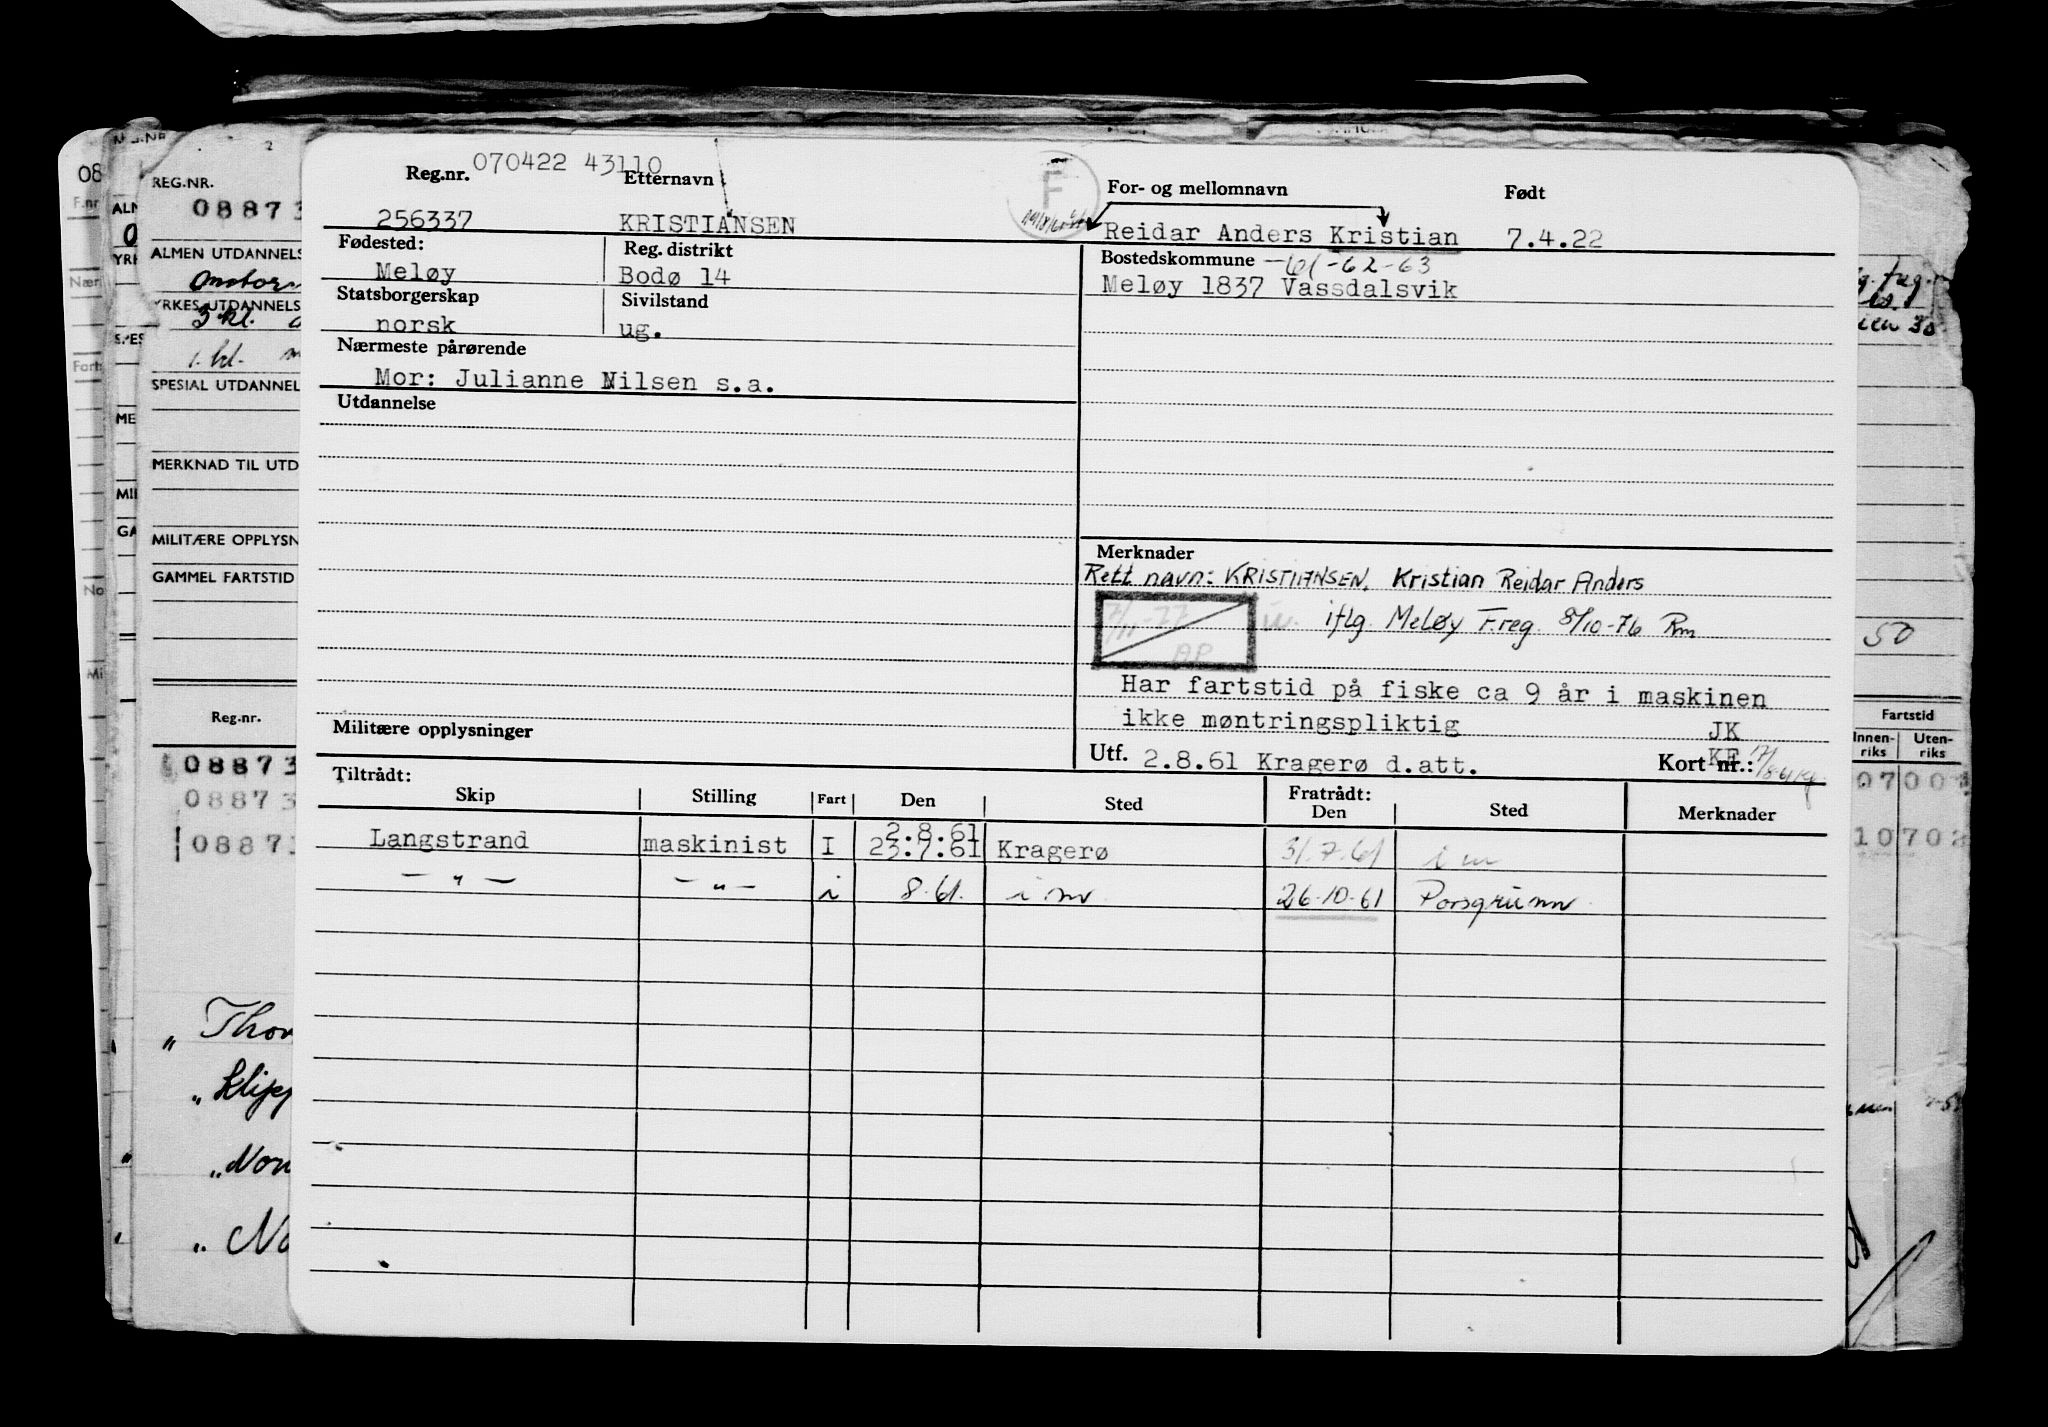 Reg.nr. 070422 43110 Etternavn For- og mellomnavn Født
256337 KRISTIANSEN Reidar Anders Kristian 7.4.22
F
Fødested: Reg. distrikt Bostedskommune -61-62-63
Meløy Bodø 14 Meløy 1837 Vassdalsvik
Statsborgerskap Sivilstand
norsk ug.
Nærmeste pårørende
Mor: Julianne Nilsen s.a.
Utdannelse
Merknader
Rett navn: KRISTIANSEN, Kristian Reidar Anders
iflg. Meløy F.reg. 8/10-76 Rm
7/11-77
AP
Har fartstid på fiske ca 9 år i maskinen
ikke mønstringspliktig JK
Militære opplysninger
Utf. 2.8.61 Kragerø d.att. KF Kort nr.:
Tiltrådt: Fratrådt:
Skip Stilling Fart Den Sted Den Sted Merknader
2.8.61
Langstrand maskinist I 23.7.61 Kragerø 31.7.61 i m
— " — — " — i 8.61. i m 26.10.61 Porsgrunn
REG.NR.
08873
ALMEN UTDANNELS
YRKES UTDANNELS
3 kl.
1. kl.
SPESIAL UTDANNEL
MERKNAD TIL UTD
MILITÆRE OPPLYSN
GAMMEL FARTSTID
Reg.nr.
08873
08873
08873
" Thor
" Klipp
" Nor
" No
50
Fartstid
Innen-riks Uten-riks
0700
10702